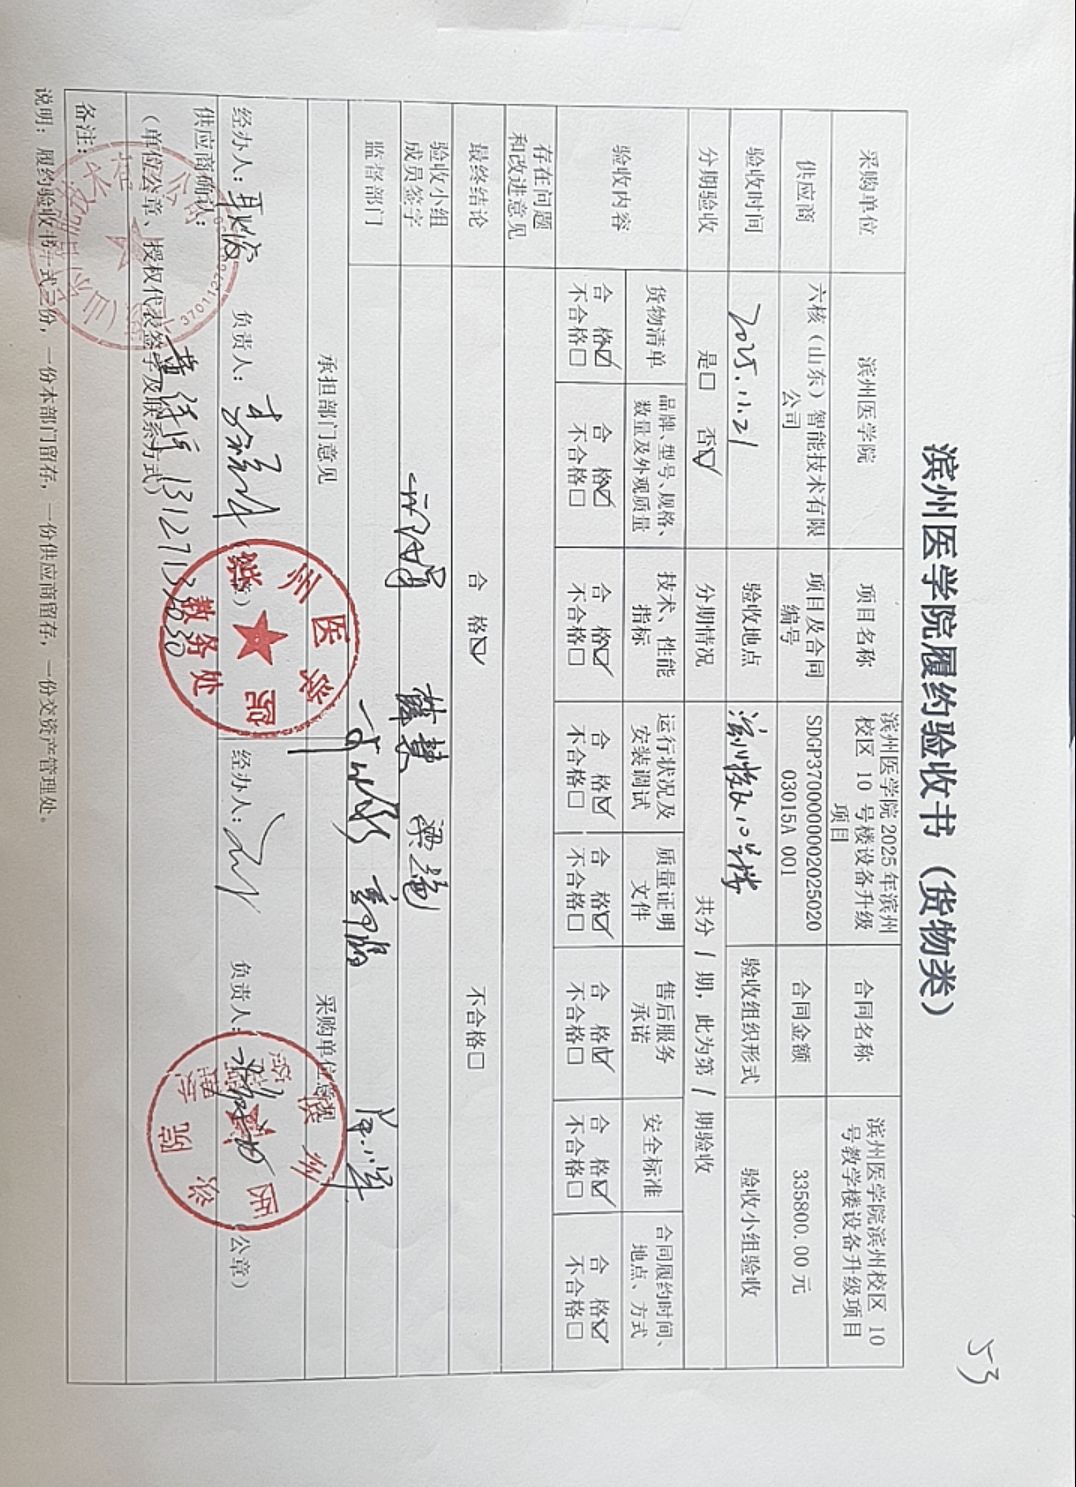 53
滨州医学院履约验收书（货物类）
采购单位 滨州医学院 项目名称 滨州医学院 2025 年滨州校区 10 号楼设备升级项目 合同名称 滨州医学院滨州校区 10 号教学楼设备升级项目
供应商 六核（山东）智能技术有限公司 项目及合同编号 SDGP370000000202502003015A_001 合同金额 335800.00 元
验收时间 2025.11.21 验收地点 滨州校区10号楼 验收组织形式 验收小组验收
分期验收 是□ 否☑ 分期情况 共分 / 期，此为第 / 期验收
验收内容 货物清单 品牌、型号、规格、数量及外观质量 技术、性能指标 运行状况及安装调试 质量证明文件 售后服务承诺 安全标准 合同履约时间、地点、方式
合 格☑ 合 格☑ 合 格☑ 合 格☑ 合 格☑ 合 格☑ 合 格☑ 合 格☑
不合格□ 不合格□ 不合格□ 不合格□ 不合格□ 不合格□ 不合格□ 不合格□
存在问题和改进意见
最终结论 合 格☑ 不合格□
验收小组成员签字 薛慧
监督部门
承担部门意见 采购单位意见
经办人： 负责人： 经办人： 负责人： 公章）
滨州医学院
教务处
供应商确认：
（单位公章、授权代表签字及联系方式）
备注：
说明：履约验收书一式三份，一份本部门留存，一份供应商留存，一份交资产管理处。